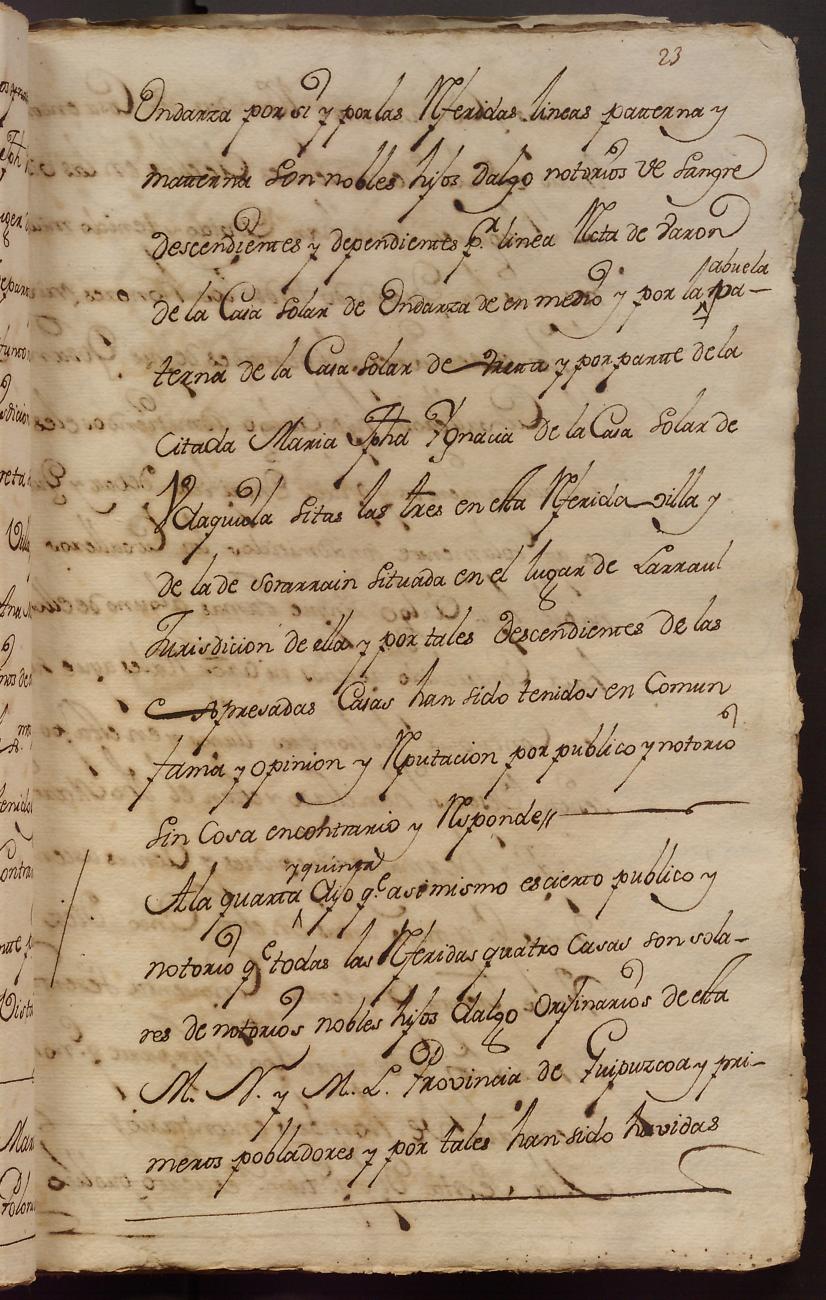 23
Ondarza por si y por las Rferidas lineas paterna y
materna son nobles hijos dalgo notorios de sangre
descendientes y dependientes pr. linea Recta de varon
de la Casa solar de Ondarza de en medio y por la abuela pa-
terna de la Casa solar de y por parte de la
Citada Maria Jpha Ygnacia de la Casa solar de
sitas las tres en esta Rferida villa y
de la de sorarrain situada en el lugar de Larraul
Jurisdicion de ella y por tales descendientes de las
expresadas Casas han sido tenidos en Comun
fama y opinion y Rputacion por publico y notorio
sin Cosa encontrario y Rsponde//
Ala quarta y quinta Dijo qe. asimismo es cierto publico y
notorio qe todas las Rferidas quatro Casas son sola-
res de notorios nobles hijos dalgo Orijinarios de esta
M. N. y M. L. Provincia de Guipuzcoa y pri-
meros pobladores y por tales han sido havidas